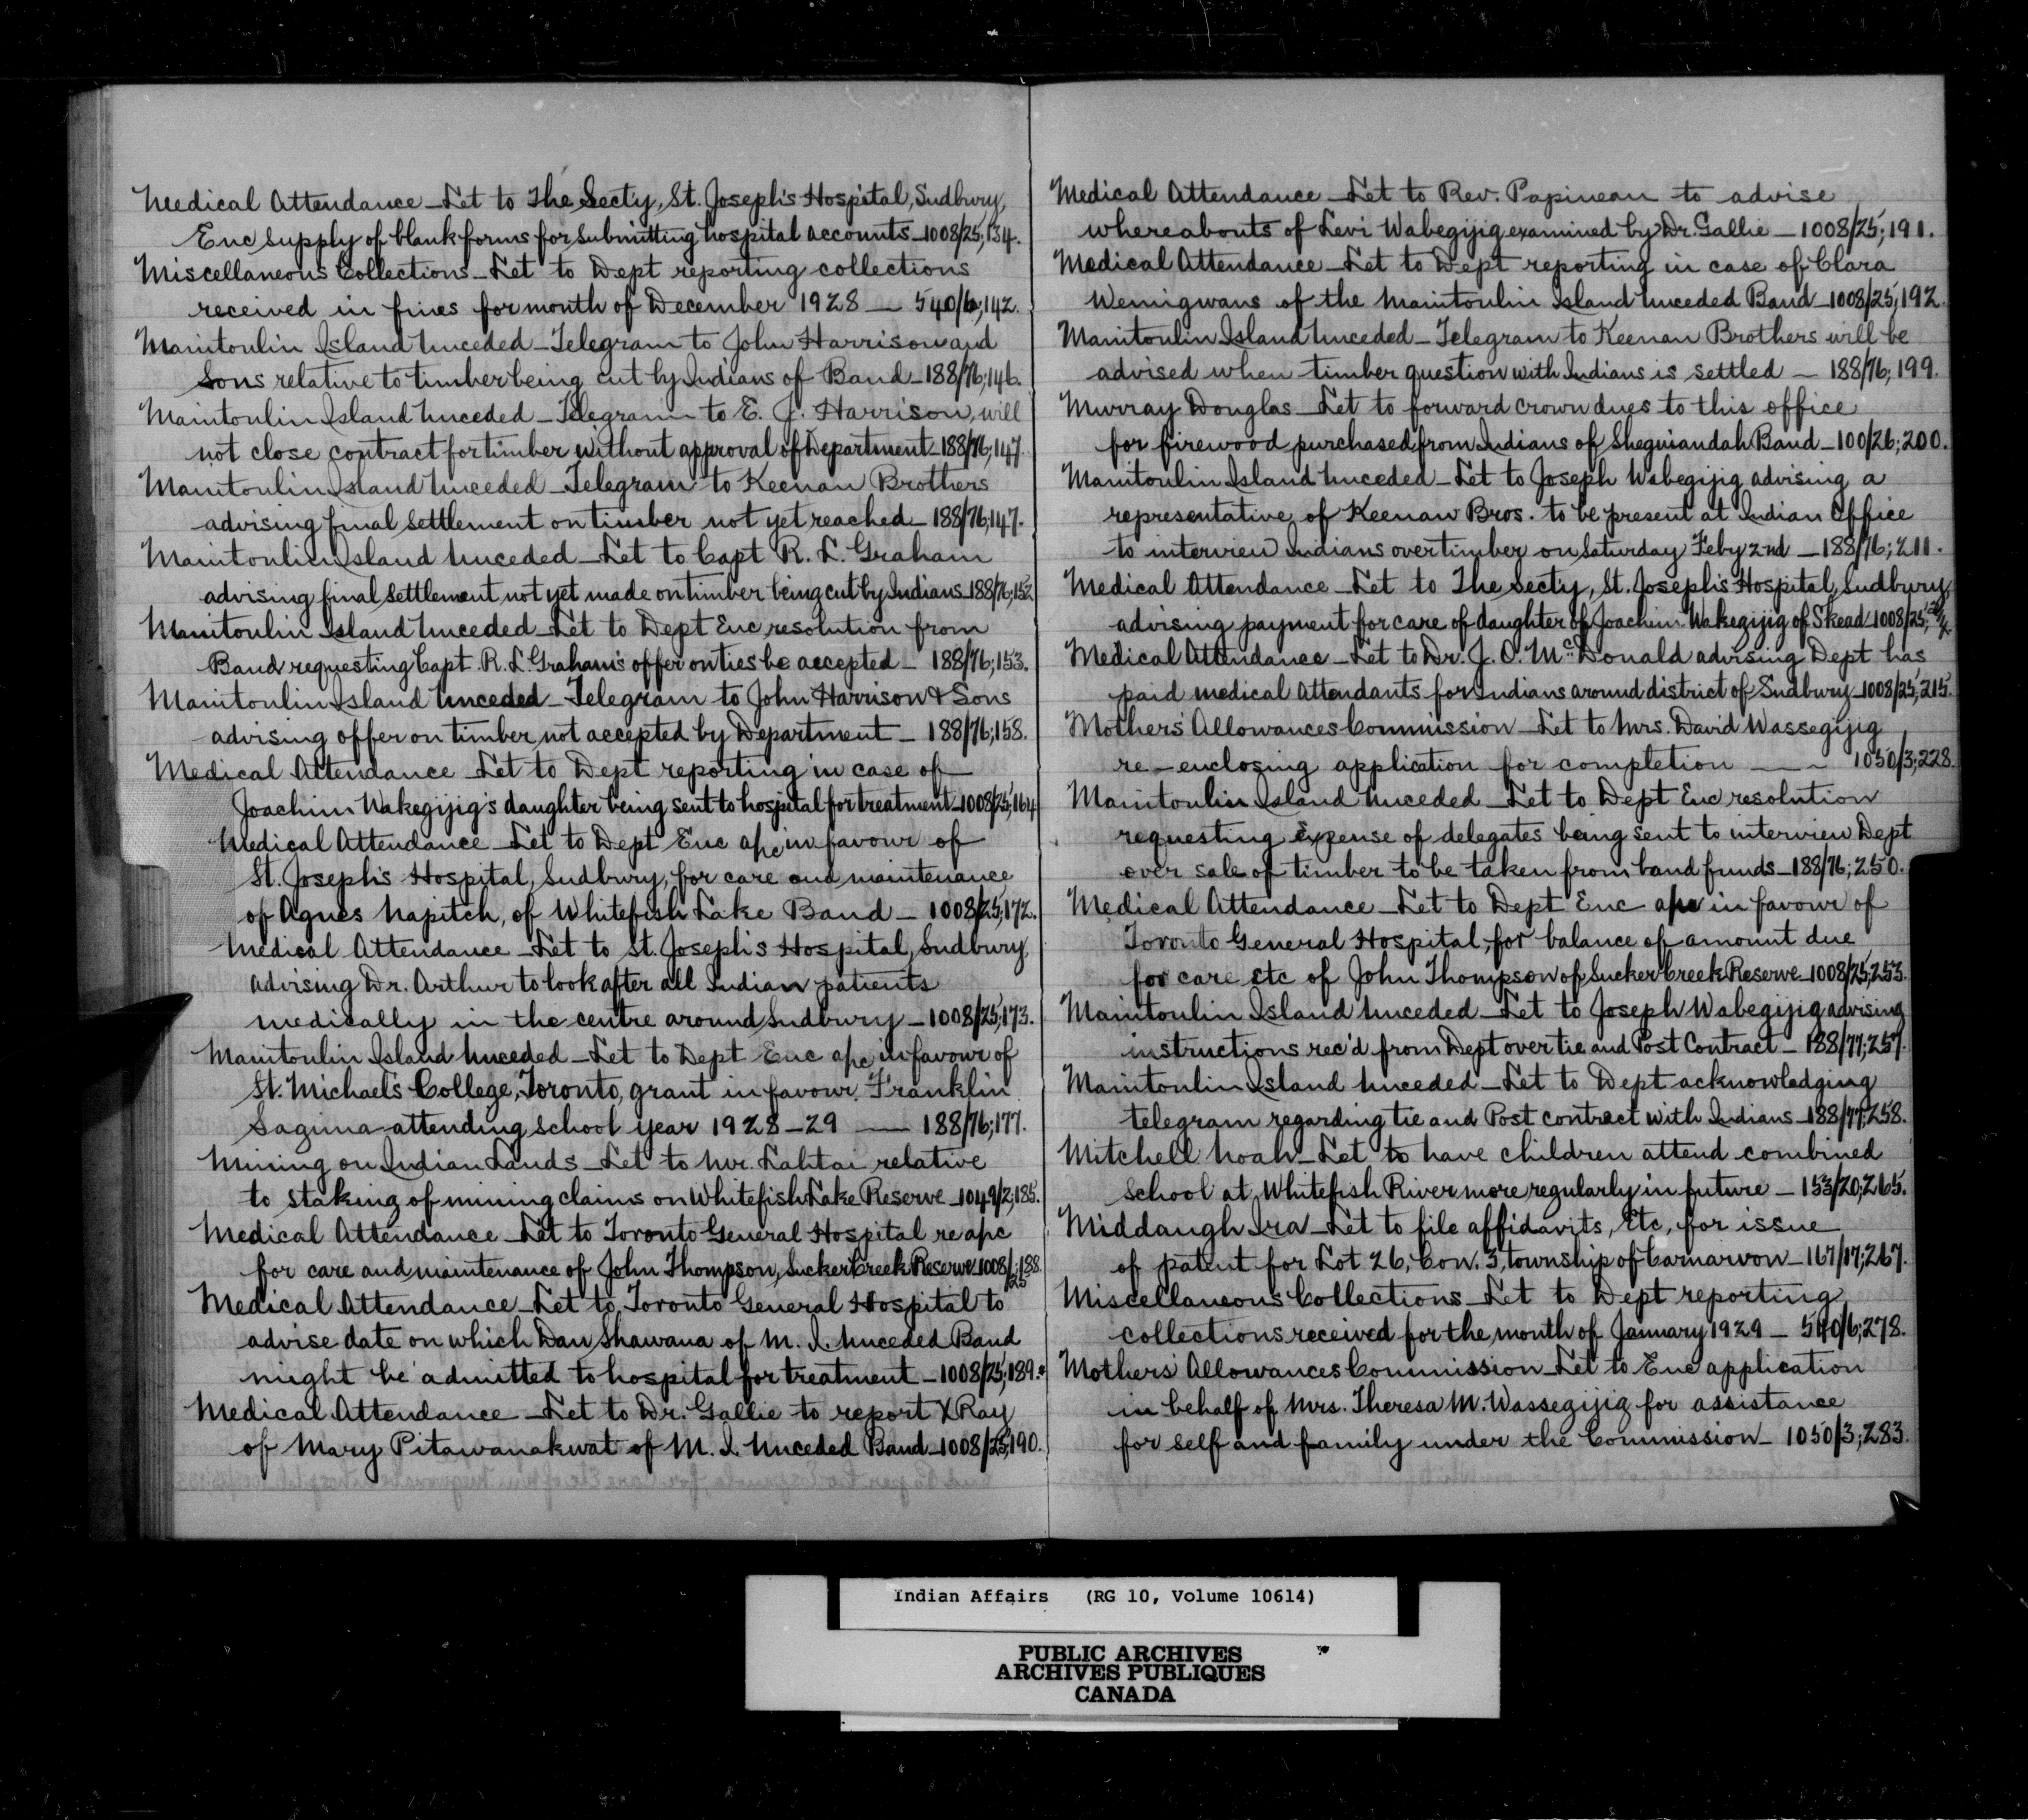 Medical Attendance – Let to The Sect'y, St. Joseph's Hospital, Sudbury,
Enc supply of blank forms for submitting hospital accounts – 1008/25; 134.
Miscellaneous Collections – Let to Dept reporting collections
received in fines for month of December 1928 — 540/6; 142.
Manitoulin Island Unceded – Telegram to John Harrison and
Sons relative to timber being cut by Indians of Band – 188/76; 146.
Manitoulin Island Unceded – Telegram to E. J. Harrison, will
not close contract for timber without approval of Department – 188/76; 147.
Manitoulin Island Unceded – Telegram to Keenan Brothers
advising final settlement on timber not yet reached – 188/76; 147.
Manitoulin Island Unceded – Let to Capt R. L. Graham
advising final settlement not yet made on timber being cut by Indians – 188/76; 152.
Manitoulin Island Unceded – Let to Dept Enc resolution from
Band requesting Capt. R. L. Graham's offer on ties be accepted – 188/76; 153.
Manitoulin Island Unceded – Telegram to John Harrison & Sons
advising offer on timber not accepted by Department – 188/76; 158.
Medical Attendance – Let to Dept reporting in case of
Joachim Wakegijig's daughter being sent to hospital for treatment – 1008/25; 164
Medical Attendance – Let to Dept Enc apc in favour of
St. Joseph's Hospital, Sudbury, for care and maintenance
of Agnes Napitch, of Whitefish Lake Band – 1008/25; 172.
Medical Attendance – Let to St. Joseph's Hospital, Sudbury,
advising Dr. Arthur to look after all Indian patients
medically in the centre around Sudbury – 1008/25; 173.
Manitoulin Island Unceded – Let to Dept Enc apc in favour of
St. Michael's College, Toronto, grant in favour Franklin
Sagima attending school year 1928–29 — 188/76; 177.
Mining on Indian Lands – Let to Mr. Lahtai relative
to staking of mining claims on Whitefish Lake Reserve – 1049/2; 185.
Medical Attendance – Let to Toronto General Hospital re apc
for care and maintenance of John Thompson, Sucker Creek Reserve 1008/25; 188.
Medical Attendance – Let to Toronto General Hospital to
advise date on which Dan Shawana of M. I. Unceded Band
might be admitted to hospital for treatment – 1008/25; 189.
Medical Attendance – Let to Dr. Gallie to report X Ray
of Mary Pitawanakwat of M. I. Unceded Band – 1008/25; 190.
Medical Attendance – Let to Rev. Papineau to advise
whereabouts of Levi Wabegijig examined by Dr. Gallie – 1008/25; 191.
Medical Attendance – Let to Dept reporting in case of Clara
Wemigwans of the Manitoulin Island Unceded Band – 1008/25; 192.
Manitoulin Island Unceded – Telegram to Keenan Brothers will be
advised when timber question with Indians is settled – 188/76; 199.
Murray Douglas – Let to forward crown dues to this office
for firewood purchased from Indians of Sheguiandah Band – 100/26; 200.
Manitoulin Island Unceded – Let to Joseph Wabegijig advising a
representative of Keenan Bros. to be present at Indian Office
to interview Indians over timber on Saturday Feby 2nd – 188/76; 211.
Medical Attendance – Let to The Sect'y, St. Joseph's Hospital, Sudbury,
advising payment for care of daughter of Joachim Wakegijig of Skead – 1008/25;
Medical Attendance – Let to Dr. J. O. McDonald advising Dept has
paid medical attendants for Indians around district of Sudbury – 1008/25; 215.
Mothers' Allowances Commission – Let to Mrs. David Wassegijig
re-enclosing application for completion — 1050/3; 228.
Manitoulin Island Unceded – Let to Dept Enc resolution
requesting expense of delegates being sent to interview Dept
over sale of timber to be taken from band funds – 188/76; 250.
Medical Attendance – Let to Dept Enc apc in favour of
Toronto General Hospital, for balance of amount due
for care etc of John Thompson of Sucker Creek Reserve – 1008/25; 253.
Manitoulin Island Unceded – Let to Joseph Wabegijig advising
instructions rec'd from Dept over tie and Post Contract – 188/77; 257.
Manitoulin Island Unceded – Let to Dept acknowledging
telegram regarding tie and Post contract with Indians – 188/77; 258.
Mitchell Noah – Let to have children attend combined
school at Whitefish River more regularly in future – 153/20; 265.
Middaugh Ira – Let to file affidavits, etc, for issue
of patent for Lot 26, Con. 3, township of Carnarvon – 167/17; 267.
Miscellaneous Collections – Let to Dept reporting
collections received for the month of January 1929 – 540/6; 278.
Mothers' Allowances Commission – Let to Enc application
in behalf of Mrs. Theresa M. Wassegijig for assistance
for self and family under the Commission – 1050/3; 283.
Indian Affairs (RG 10, Volume 10614)
PUBLIC ARCHIVES
ARCHIVES PUBLIQUES
CANADA